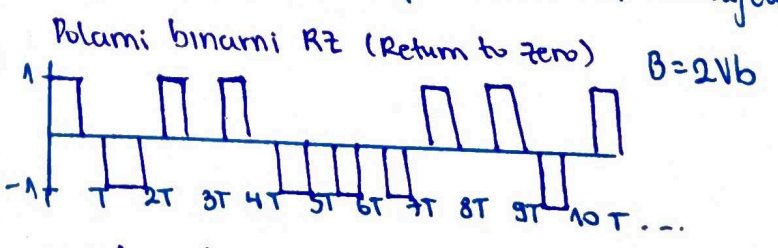 Polarni binarni RZ (Return to zero)
B=2Vb
1
-1 T 2T 3T 4T 5T 6T 7T 8T 9T 10T....